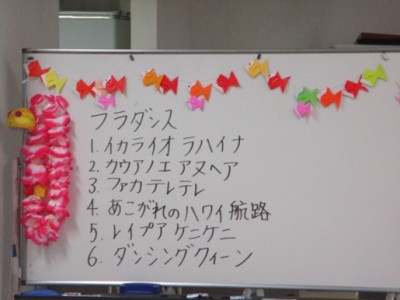 フラダンス
1. イカライオ ラハイナ
2. カウアノエ アヌヘア
3. ファカテレテレ
4. あこがれのハワイ航路
5. レイプア ケニケニ
6. ダンシングクィーン